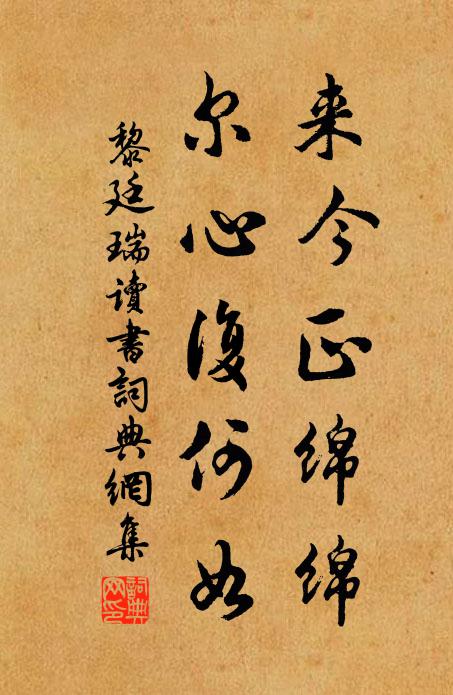 来今正绵绵
尔心復何如
黎廷瑞讀書詞典網集
詞典网印